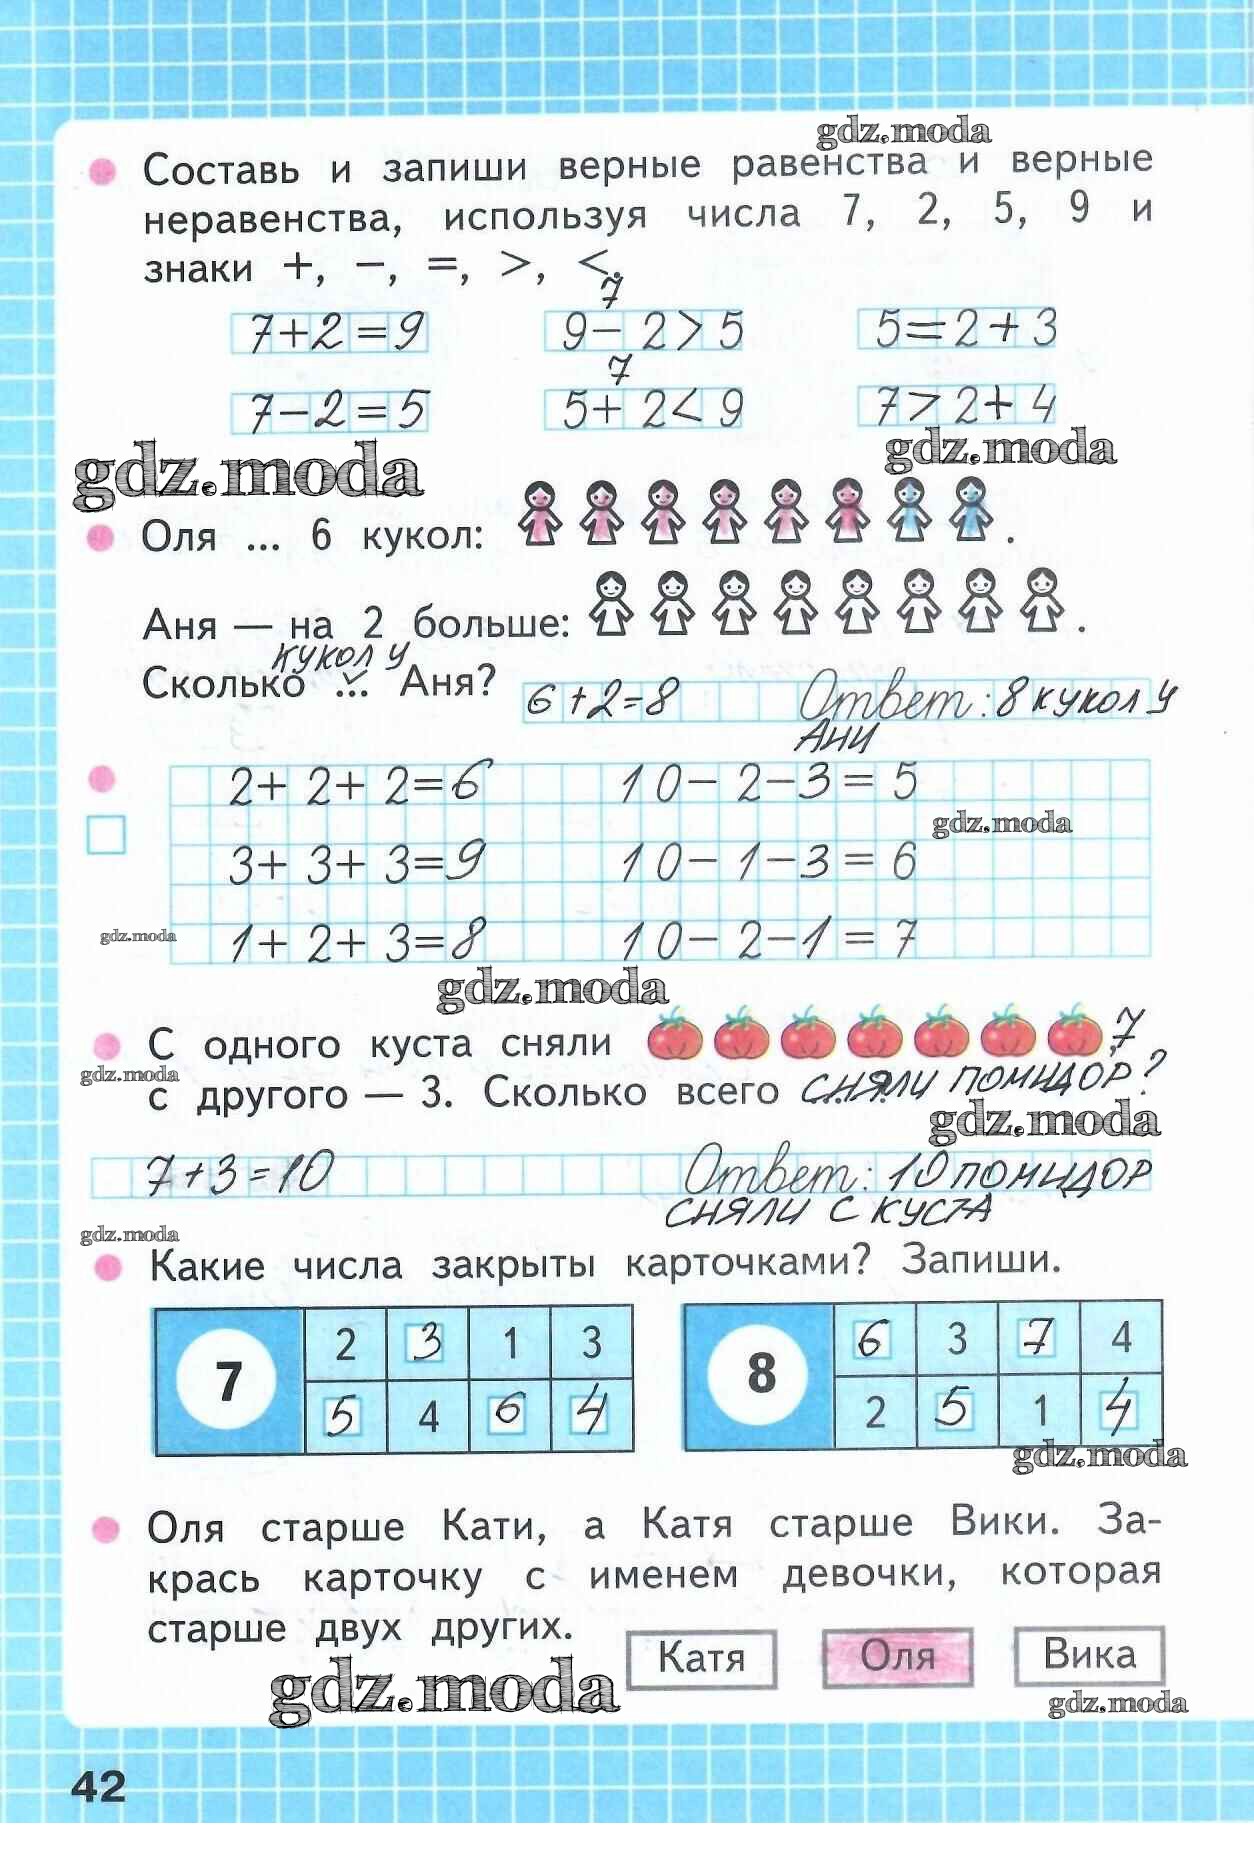 gdz.moda
Составь и запиши верные равенства и верные
неравенства, используя числа 7, 2, 5, 9 и
знаки +, −, =, >, <.
7
7+2=9 9−2>5 5=2+3
7
7−2=5 5+2<9 7>2+4
gdz.moda gdz.moda
Оля ... 6 кукол: .
Аня — на 2 больше: .
кукол у
Сколько ... Аня? 6+2=8 Ответ: 8 кукол у
Ани
2+2+2=6 10−2−3=5
gdz.moda
3+3+3=9 10−1−3=6
gdz.moda
1+2+3=8 10−2−1=7
gdz.moda
С одного куста сняли , 7
gdz.moda
с другого — 3. Сколько всего сняли помидор?
gdz.moda
7+3=10 Ответ: 10 помидор
сняли с куста
gdz.moda
Какие числа закрыты карточками? Запиши.
7 2 3 1 3 8 6 3 7 4
5 4 6 4 2 5 1 4
gdz.moda
Оля старше Кати, а Катя старше Вики. За-
крась карточку с именем девочки, которая
старше двух других.
Катя Оля Вика
gdz.moda gdz.moda
42